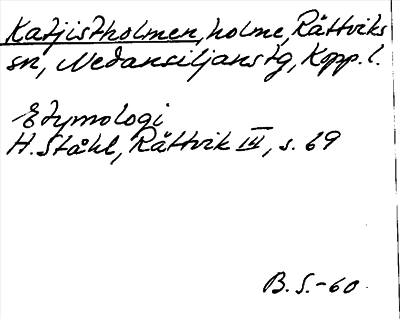 Katjistholmen, holme, Rättviks
sn, Nedansiljans tg, Kopp. l.
Etymologi
H. Ståhl, Rättvik III, s. 69
B. S. -60